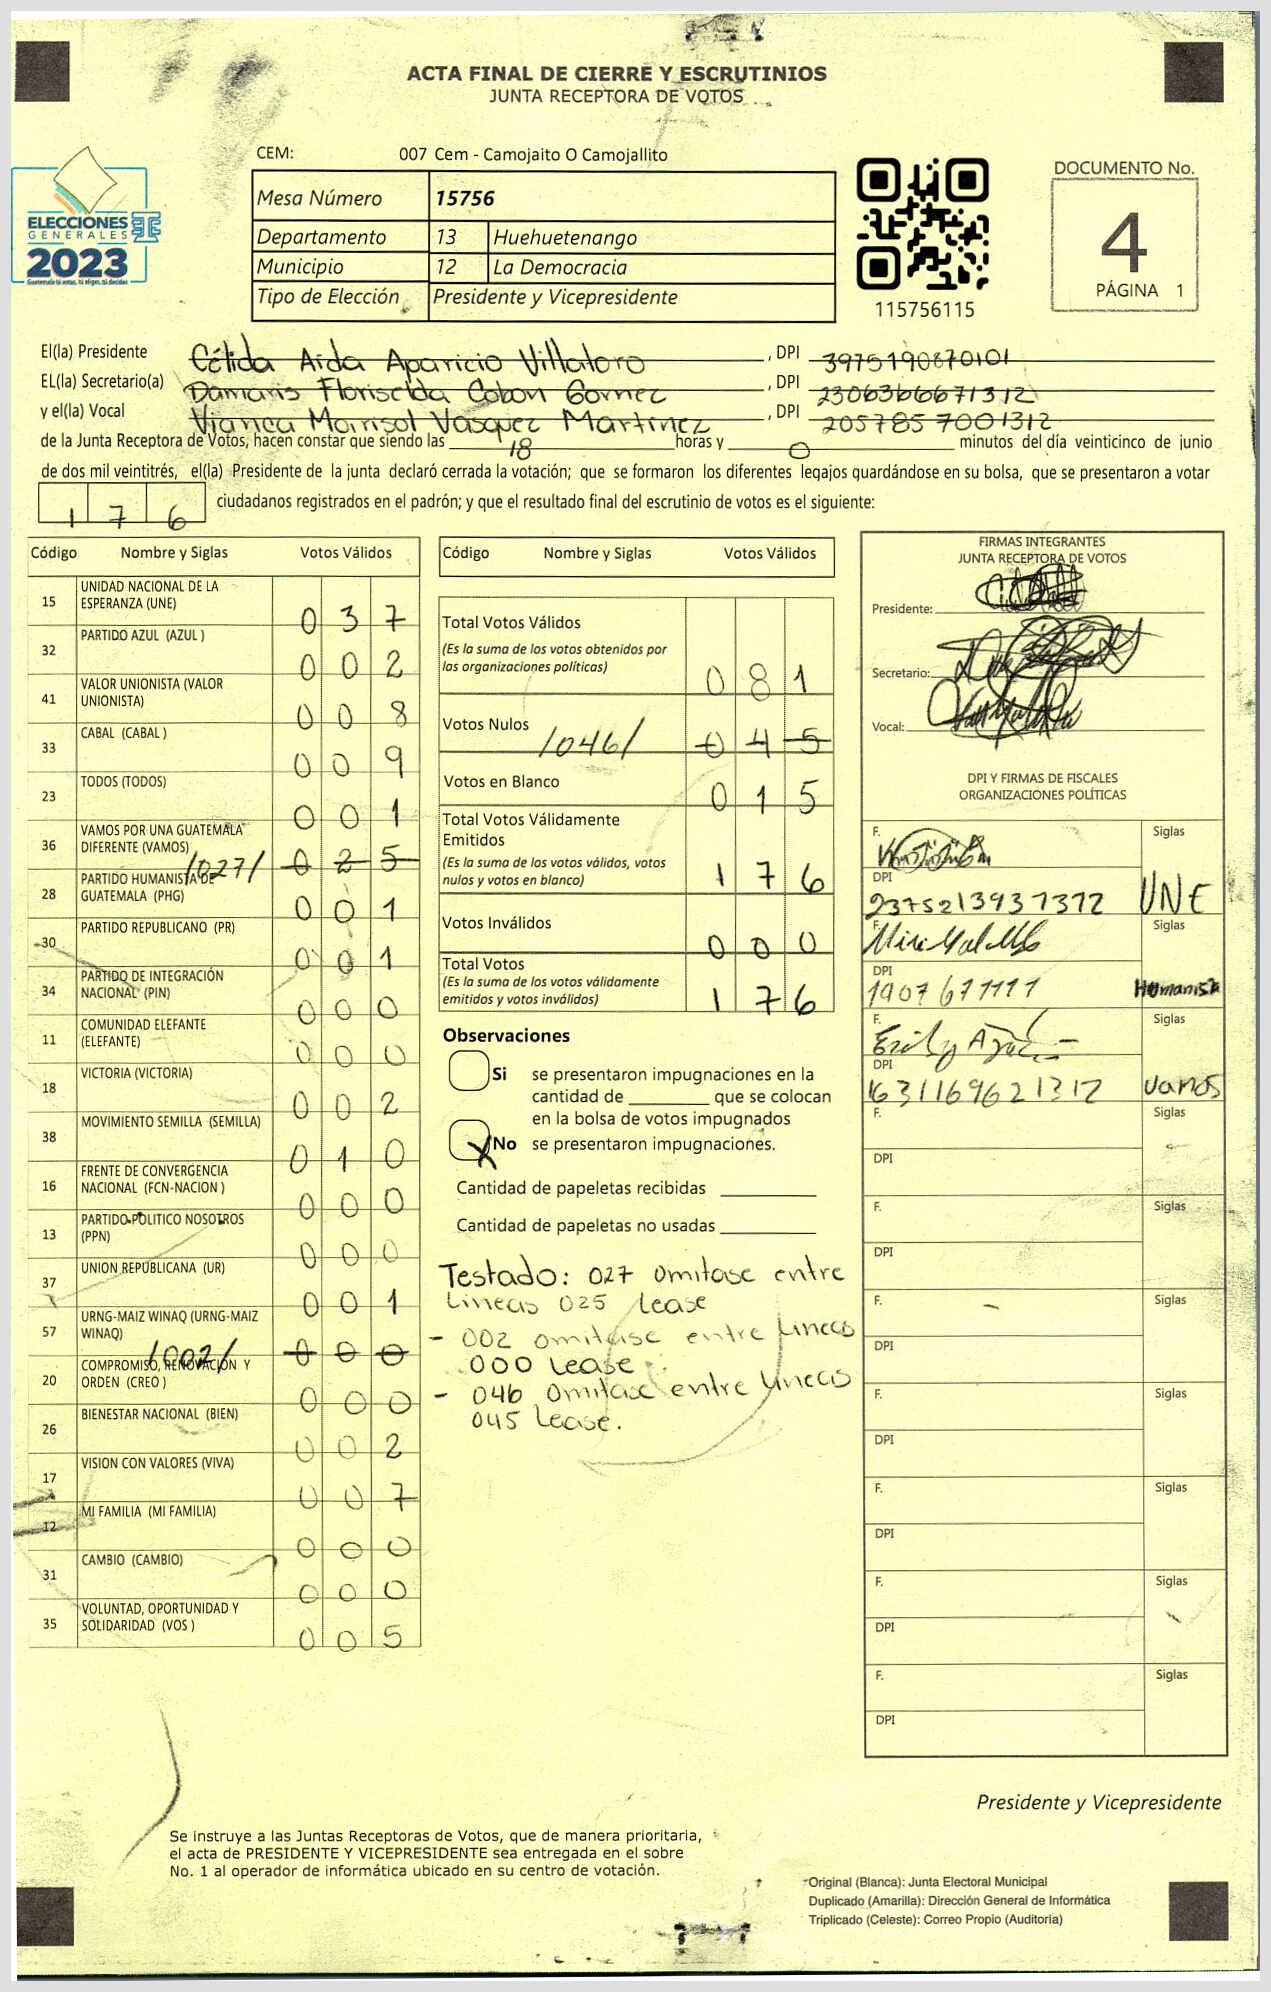 ACTA FINAL DE CIERRE Y ESCRUTINIOS
JUNTA RECEPTORA DE VOTOS
CEM: 007 Cem - Camojaito O Camojallito
ELECCIONES
GENERALES
2023
Guatemala tú votas, tú eliges, tú decides
Mesa Número 15756
Departamento 13 Huehuetenango
Municipio 12 La Democracia
Tipo de Elección Presidente y Vicepresidente
115756115
DOCUMENTO No.
4
PÁGINA 1
El(la) Presidente Célida Aida Aparicio Villatoro, DPI 3975190870101
EL(la) Secretario(a) Damaris Floriselda Cobon Gomez, DPI 2306366671312
y el(la) Vocal Vianca Marisol Vasquez Martinez, DPI 2057857001312
de la Junta Receptora de Votos, hacen constar que siendo las 18 horas y 0 minutos del día veinticinco de junio
de dos mil veintitrés, el(la) Presidente de la junta declaró cerrada la votación; que se formaron los diferentes legajos guardándose en su bolsa, que se presentaron a votar
176 ciudadanos registrados en el padrón; y que el resultado final del escrutinio de votos es el siguiente:
Código Nombre y Siglas Votos Válidos
15 UNIDAD NACIONAL DE LA ESPERANZA (UNE) 037
32 PARTIDO AZUL (AZUL ) 002
41 VALOR UNIONISTA (VALOR UNIONISTA) 008
33 CABAL (CABAL ) 009
23 TODOS (TODOS) 001
36 VAMOS POR UNA GUATEMALA DIFERENTE (VAMOS) /027/ 025
28 PARTIDO HUMANISTA DE GUATEMALA (PHG) 001
30 PARTIDO REPUBLICANO (PR) 001
34 PARTIDO DE INTEGRACIÓN NACIONAL (PIN) 000
11 COMUNIDAD ELEFANTE (ELEFANTE) 000
18 VICTORIA (VICTORIA) 002
38 MOVIMIENTO SEMILLA (SEMILLA) 010
16 FRENTE DE CONVERGENCIA NACIONAL (FCN-NACION ) 000
13 PARTIDO POLITICO NOSOTROS (PPN) 000
37 UNION REPUBLICANA (UR) 001
57 URNG-MAIZ WINAQ (URNG-MAIZ WINAQ) /002/ 000
20 COMPROMISO, RENOVACIÓN Y ORDEN (CREO ) 000
26 BIENESTAR NACIONAL (BIEN) 002
17 VISION CON VALORES (VIVA) 007
12 MI FAMILIA (MI FAMILIA) 000
31 CAMBIO (CAMBIO) 000
35 VOLUNTAD, OPORTUNIDAD Y SOLIDARIDAD (VOS ) 005
Código Nombre y Siglas Votos Válidos
Total Votos Válidos 081
(Es la suma de los votos obtenidos por
las organizaciones políticas)
Votos Nulos /046/ 045
Votos en Blanco 015
Total Votos Válidamente
Emitidos 176
(Es la suma de los votos válidos, votos
nulos y votos en blanco)
Votos Inválidos 000
Total Votos 176
(Es la suma de los votos válidamente
emitidos y votos inválidos)
Observaciones
Si se presentaron impugnaciones en la
cantidad de ________ que se colocan
en la bolsa de votos impugnados
X No se presentaron impugnaciones.
Cantidad de papeletas recibidas
Cantidad de papeletas no usadas
Testado: 027 omitase entre
Lineas 025 Lease
- 002 omitase entre Lineas
000 Lease
- 046 omitase entre Lineas
045 Lease.
FIRMAS INTEGRANTES
JUNTA RECEPTORA DE VOTOS
Presidente:
Secretario:
Vocal:
DPI Y FIRMAS DE FISCALES
ORGANIZACIONES POLÍTICAS
F. Siglas
DPI 2375213931312 UNE
F. Siglas
DPI 1907677777 Humanista
F. Siglas
DPI 1631169621312 Vamos
F. Siglas
DPI
F. Siglas
DPI
F. Siglas
DPI
F. Siglas
DPI
F. Siglas
DPI
F. Siglas
DPI
F. Siglas
DPI
Presidente y Vicepresidente
Se instruye a las Juntas Receptoras de Votos, que de manera prioritaria,
el acta de PRESIDENTE Y VICEPRESIDENTE sea entregada en el sobre
No. 1 al operador de informática ubicado en su centro de votación.
Original (Blanca): Junta Electoral Municipal
Duplicado (Amarilla): Dirección General de Informática
Triplicado (Celeste): Correo Propio (Auditoría)